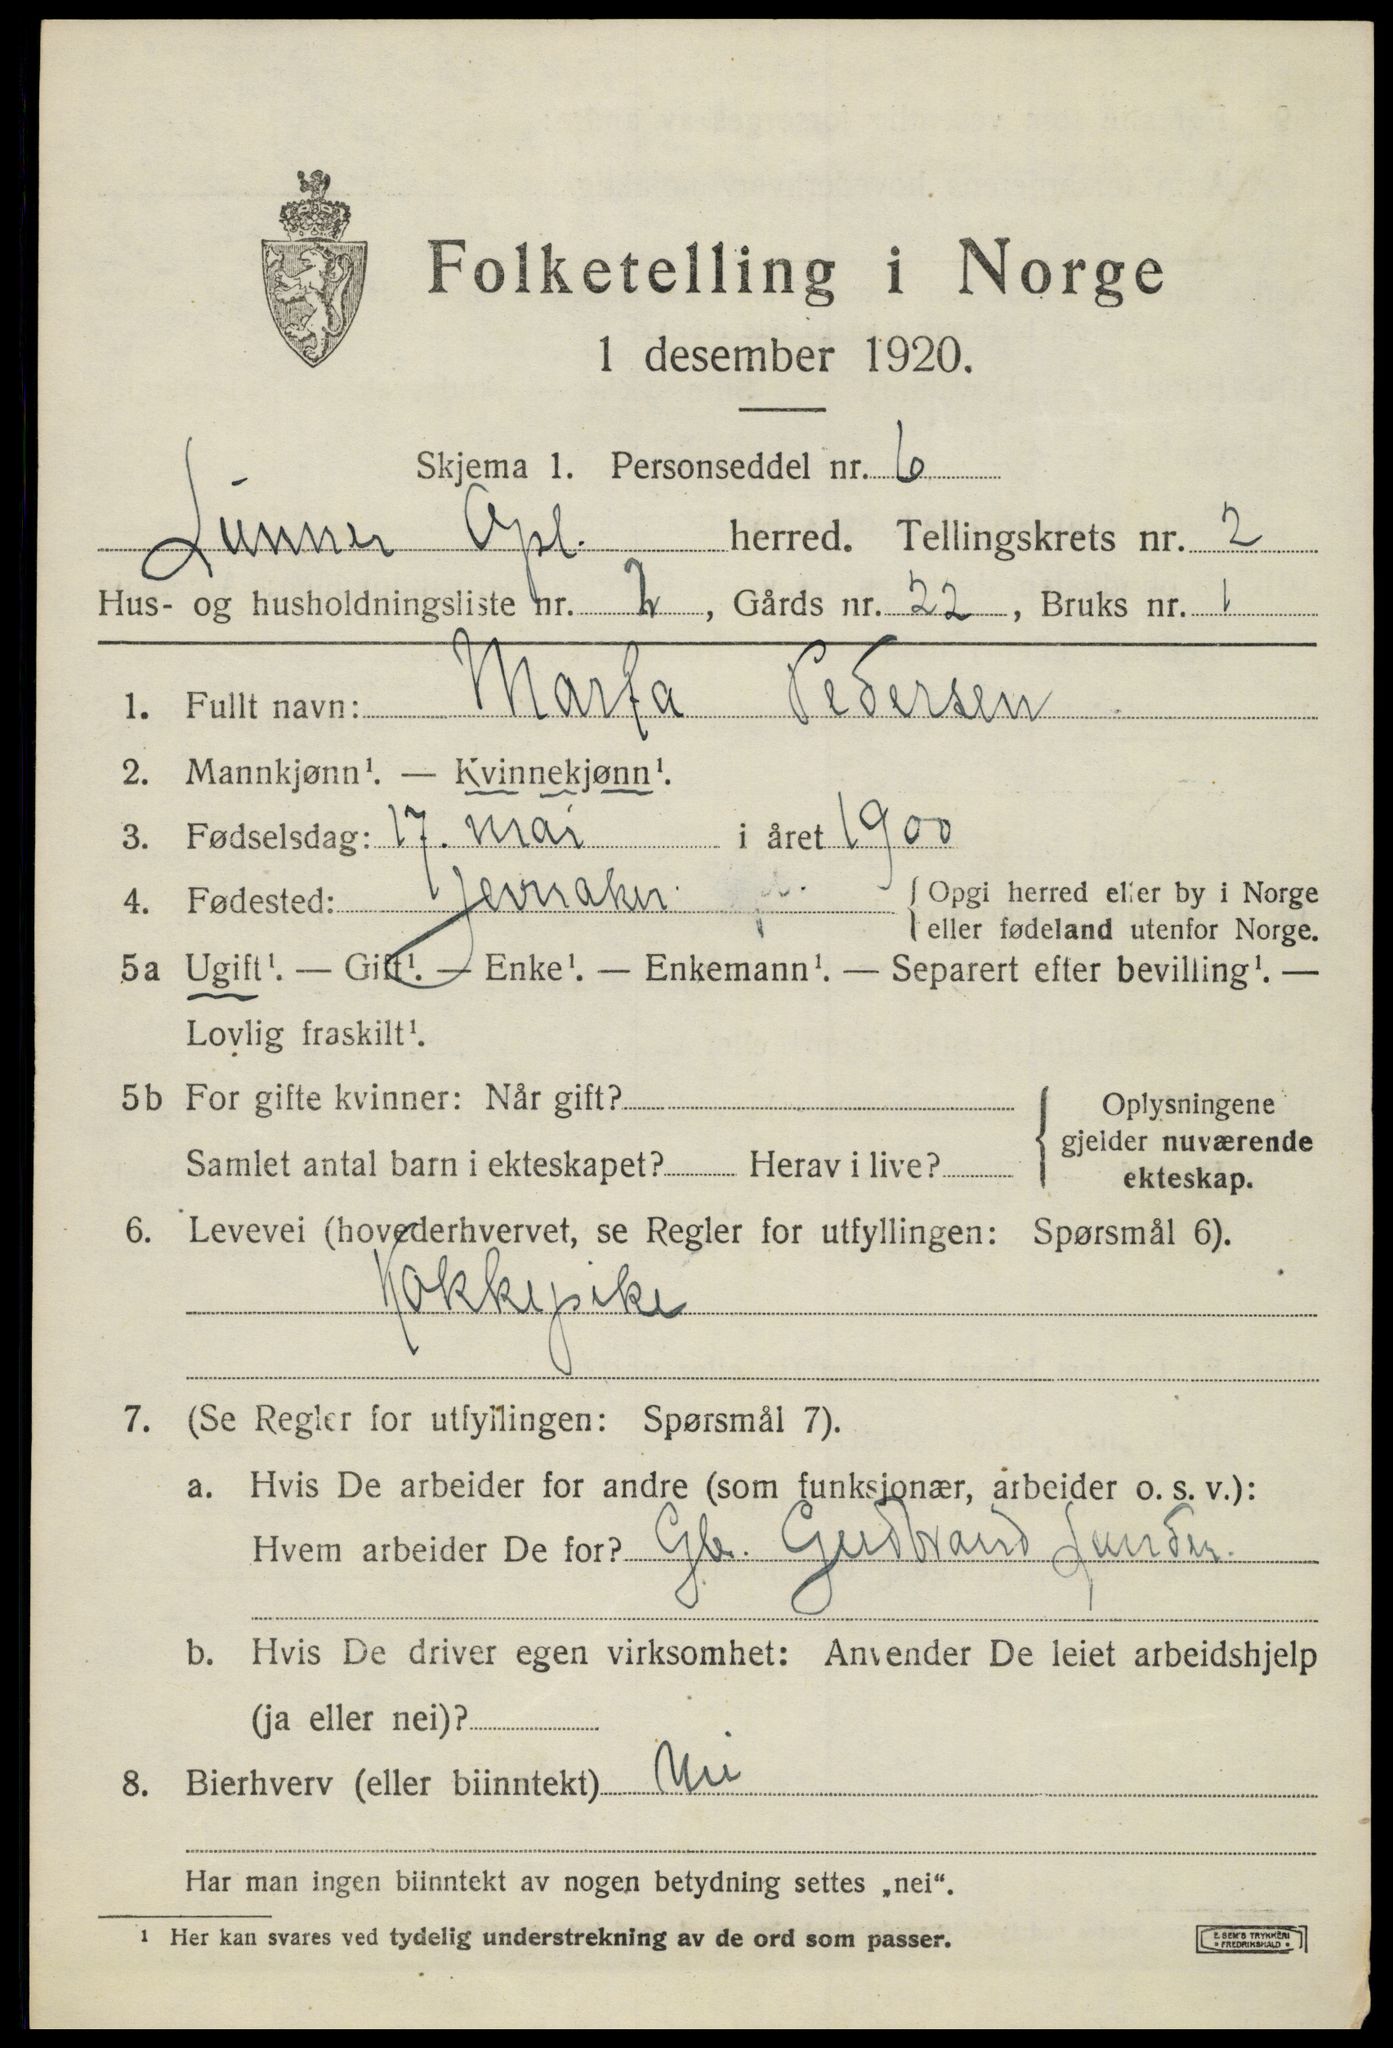 Folketelling i Norge
1 desember 1920.
Skjema 1. Personseddel nr. 6
Lunner Opl. herred. Tellingskrets nr. 2
Hus- og husholdningsliste nr. 2, Gårds nr. 22, Bruks nr. 1
1. Fullt navn: Marja Pedersen
2. Mannkjønn¹. — Kvinnekjønn¹.
3. Fødselsdag: 17. mai i året 1900
4. Fødested: Jevnaker { Opgi herred eller by i Norge
eller fødeland utenfor Norge.
5a Ugift¹. — Gift¹. — Enke¹. — Enkemann¹. — Separert efter bevilling¹. —
Lovlig fraskilt¹.
5b For gifte kvinner: Når gift?
Samlet antal barn i ekteskapet? Herav i live?
{ Oplysningene
gjelder nuværende
ekteskap.
6. Levevei (hovederhvervet, se Regler for utfyllingen: Spørsmål 6).
Kokkepike
7. (Se Regler for utfyllingen: Spørsmål 7).
a. Hvis De arbeider for andre (som funksjonær, arbeider o. s. v.):
Hvem arbeider De for? Gbr. Gudbrand Lunden.
b. Hvis De driver egen virksomhet: Anvender De leiet arbeidshjelp
(ja eller nei)?
8. Bierhverv (eller biinntekt) Nei
Har man ingen biinntekt av nogen betydning settes „nei“.
¹ Her kan svares ved tydelig understrekning av de ord som passer.
E. SEM'S TRYKKERI
• FREDRIKSHALD •